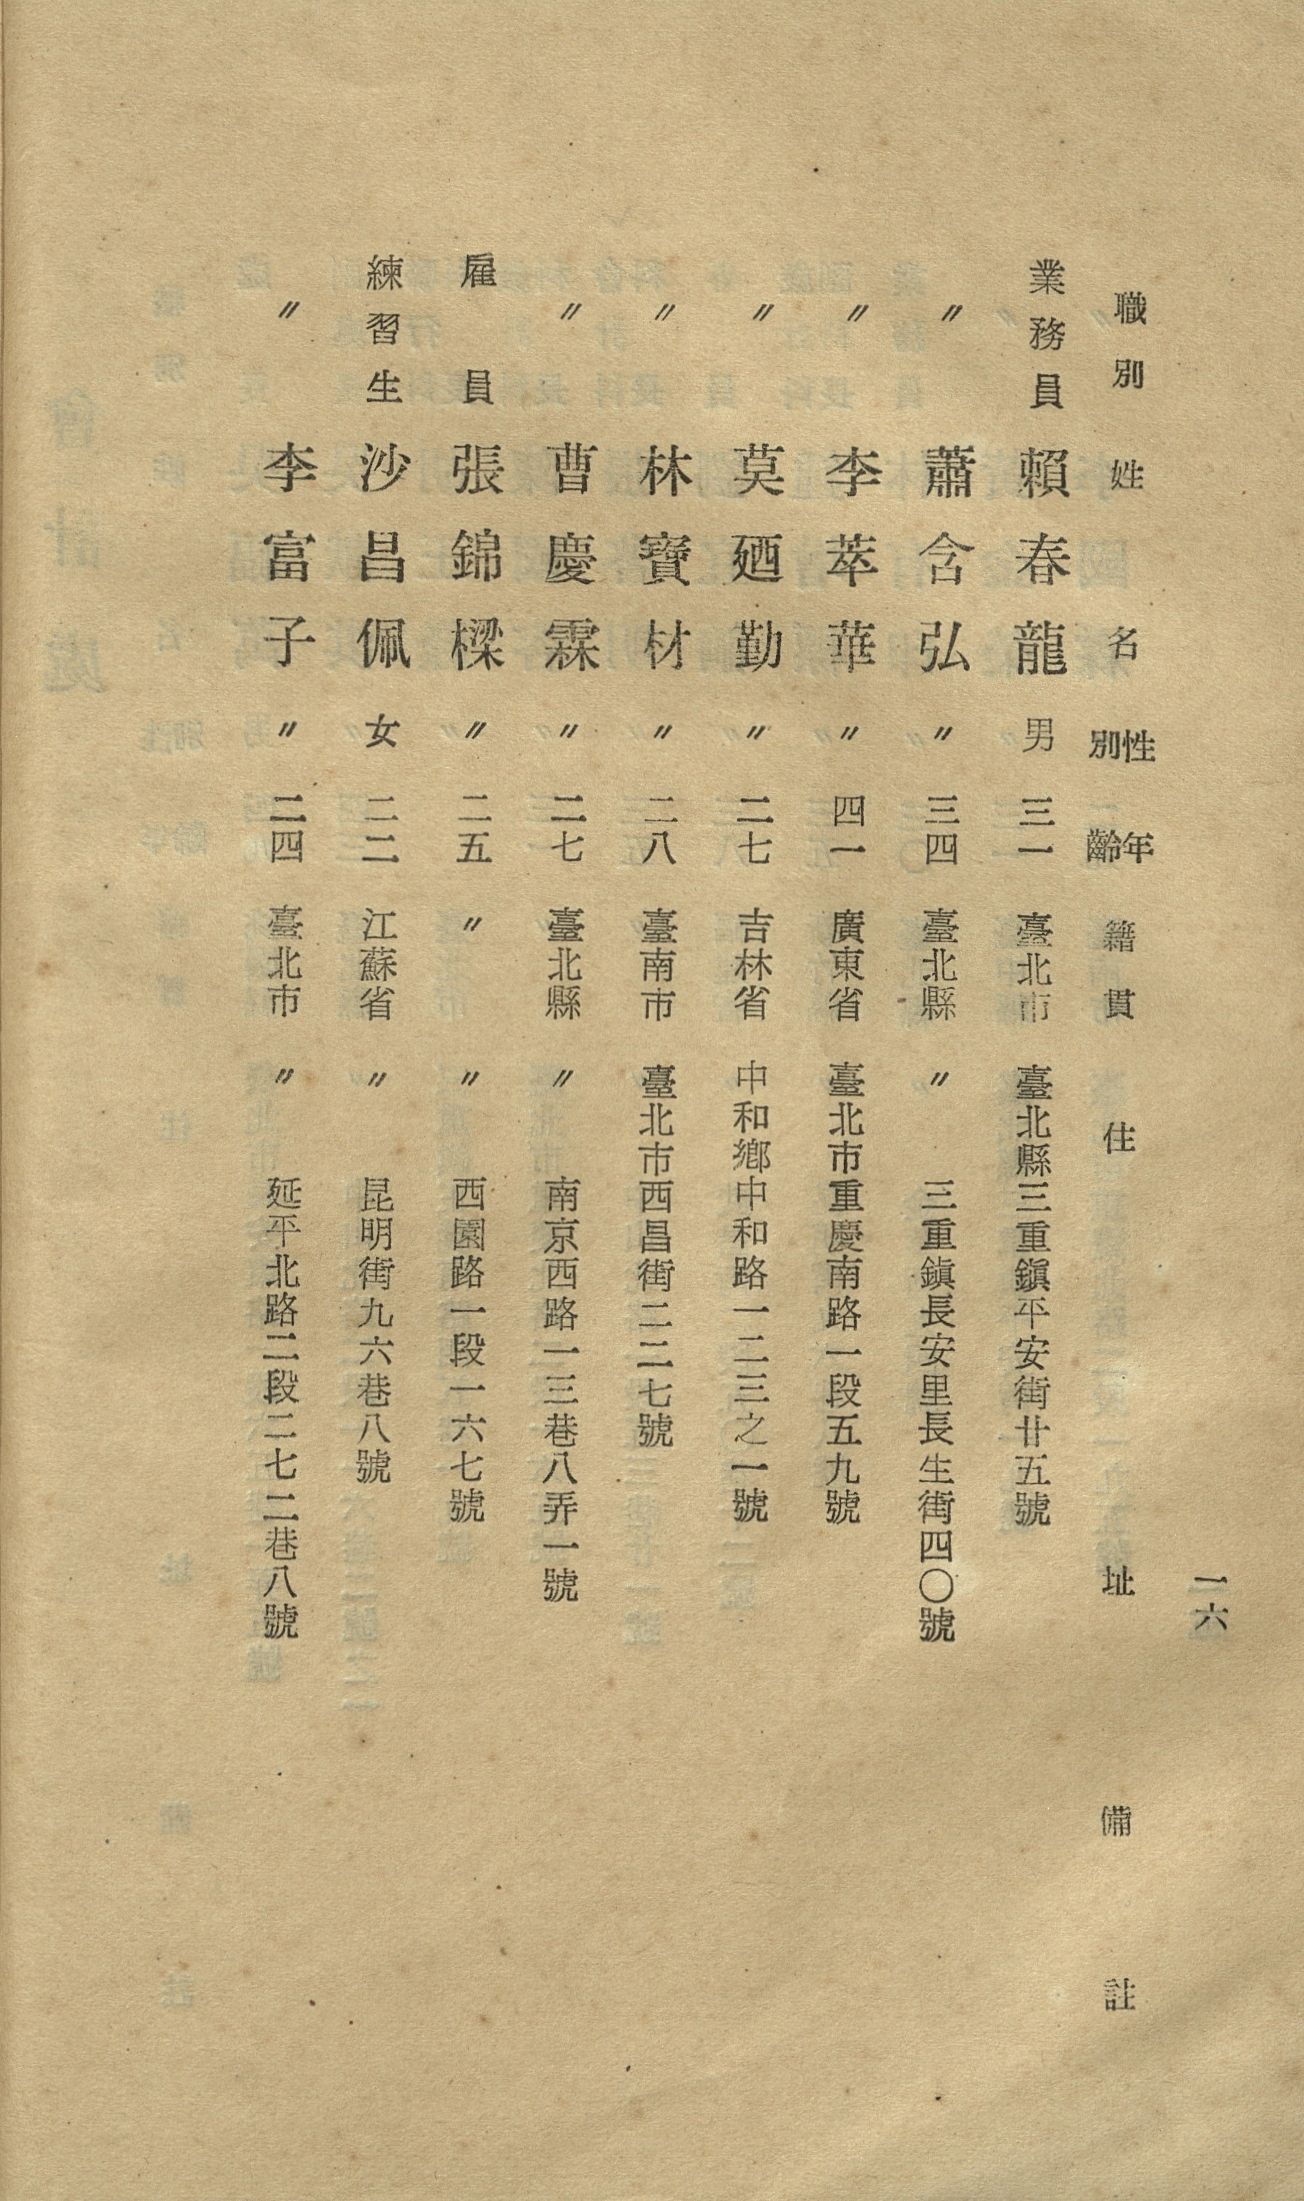 一六
職別 姓名 性別 年齡 籍貫 住址 備註
業務員 賴春龍 男 三一 臺北市 臺北縣三重鎭平安街廿五號
〃 蕭含弘 〃 三四 臺北縣 〃 三重鎭長安里長生街四〇號
〃 李萃華 〃 四一 廣東省 臺北市重慶南路一段五九號
〃 莫廼勤 〃 二七 吉林省 中和鄉中和路一二三之一號
〃 林寶材 〃 二八 臺南市 臺北市西昌街二二七號
〃 曹慶霖 〃 二七 臺北縣 〃 南京西路一三巷八弄一號
雇員 張錦樑 〃 二五 〃 〃 西園路一段一六七號
練習生 沙昌佩 女 二二 江蘇省 〃 昆明街九六巷八號
〃 李富子 〃 二四 臺北市 〃 延平北路二段二七二巷八號